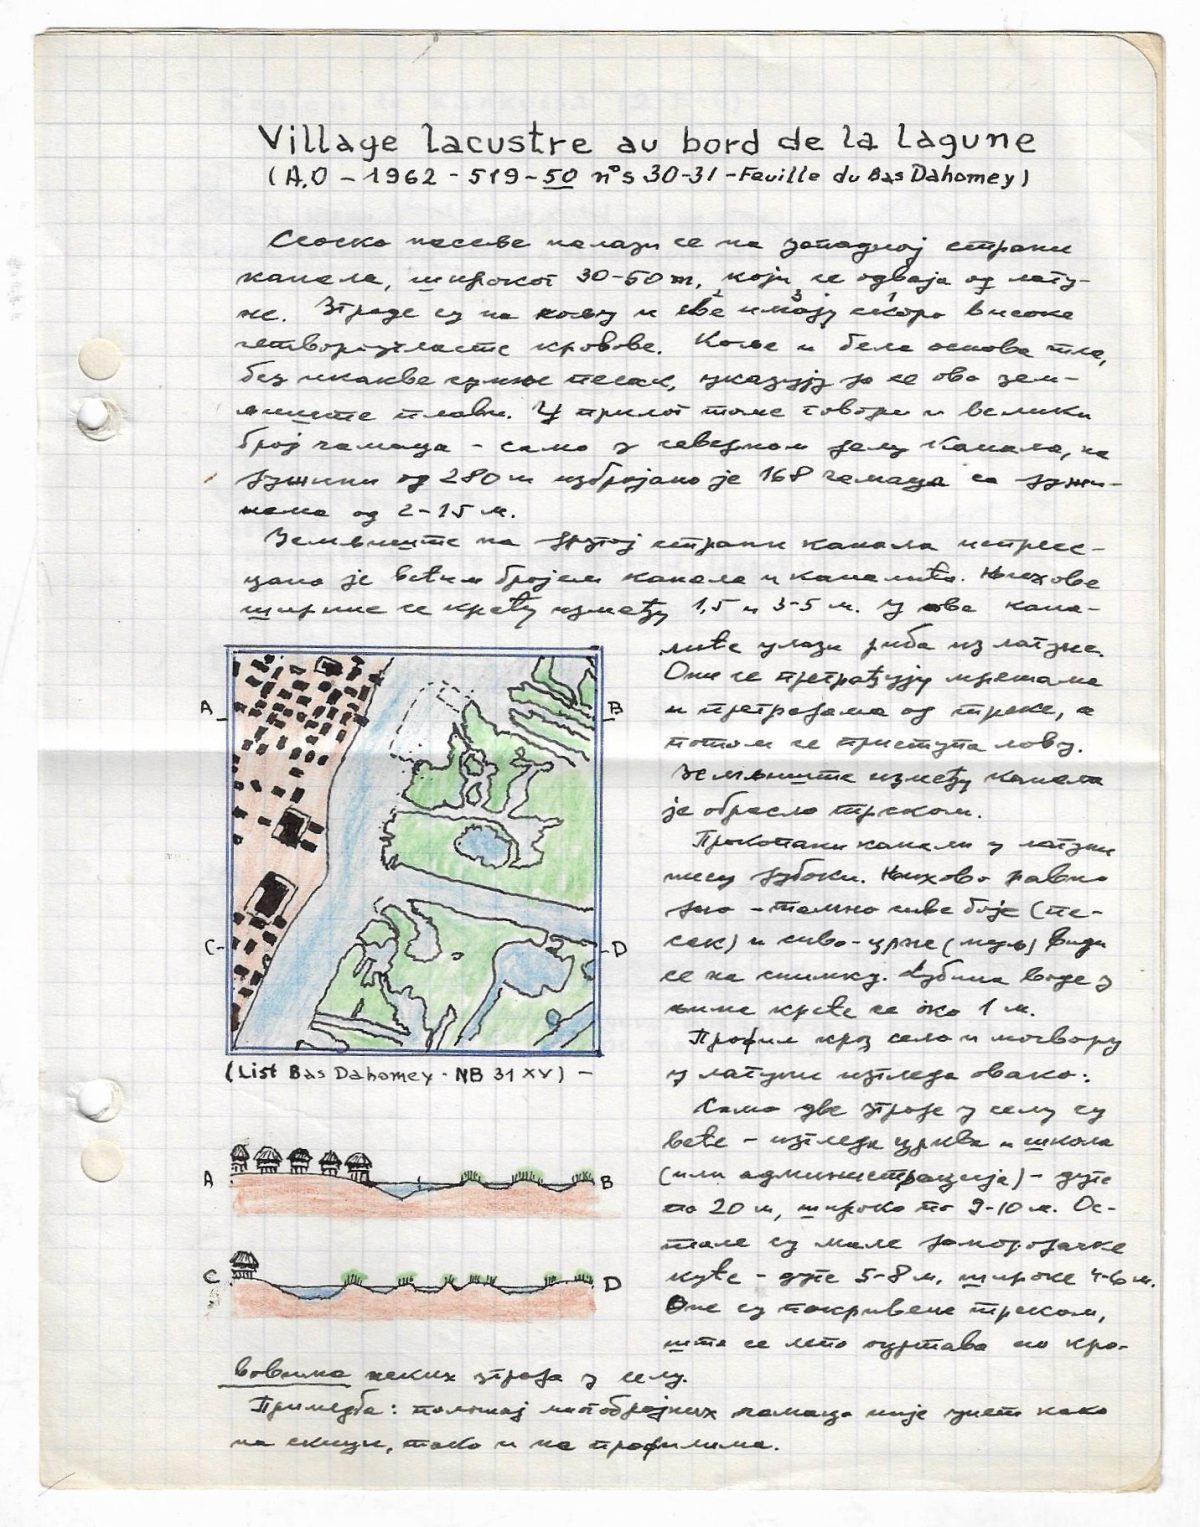 Village lacustre au bord de la lagune
(A.O – 1962 - 519 – 50 n°s 30-31 – Feuille du Bas Dahomey)
Сеоско насеље налази се на западној страни
канала, широког 30-50 m, који се одваја од лагу-
не. Зграде су на кољу и све имају скоро високе
четвороугласте кровове. Коље и бела основа тла,
без икакве сумње песак, указују да се ово зем-
љиште плави. У прилог томе говори и велики
број чамаца – само у северном делу канала, на
дужини од 280 m избројано је 168 чамаца са дужи-
нама од 2-15 м.
Земљиште на другој страни канала испресе-
цано је већим бројем канала и каналића. Њихове
ширине се крећу између 1,5 и 3-5 м. У ове кана-
лиће улази риба из лагуне.
Они се преграђују мрежама
и преградама од трске, а
потом се приступа лову.
Земљиште између канала
је обрасло трском.
Прокопани канали у лагуни
нису дубоки. Њихово равно
дно – тамно сиве боје (пе-
сак) и сиво-црне (муљ) види
се на снимку. Дубина воде у
њима креће се око 1 м.
Профил кроз село и мочвару
у лагуни изгледа овако:
Само две зграде у селу су
веће – изгледа црква и школа
(или администрација) – дуге
по 20 м, широке по 9-10 м. Ос-
тале су мале домородачке
куће – дуге 5-8 м, широке 4-6 м.
Оне су покривене трском,
што се лепо оцртава по кро-
вовима неких зграда у селу.
Примедба: положај многобројних чамаца није унет како
на скици, тако и на профилима.
A
B
C
D
(List Bas Dahomey - NB 31 XV) –
A
B
C
D